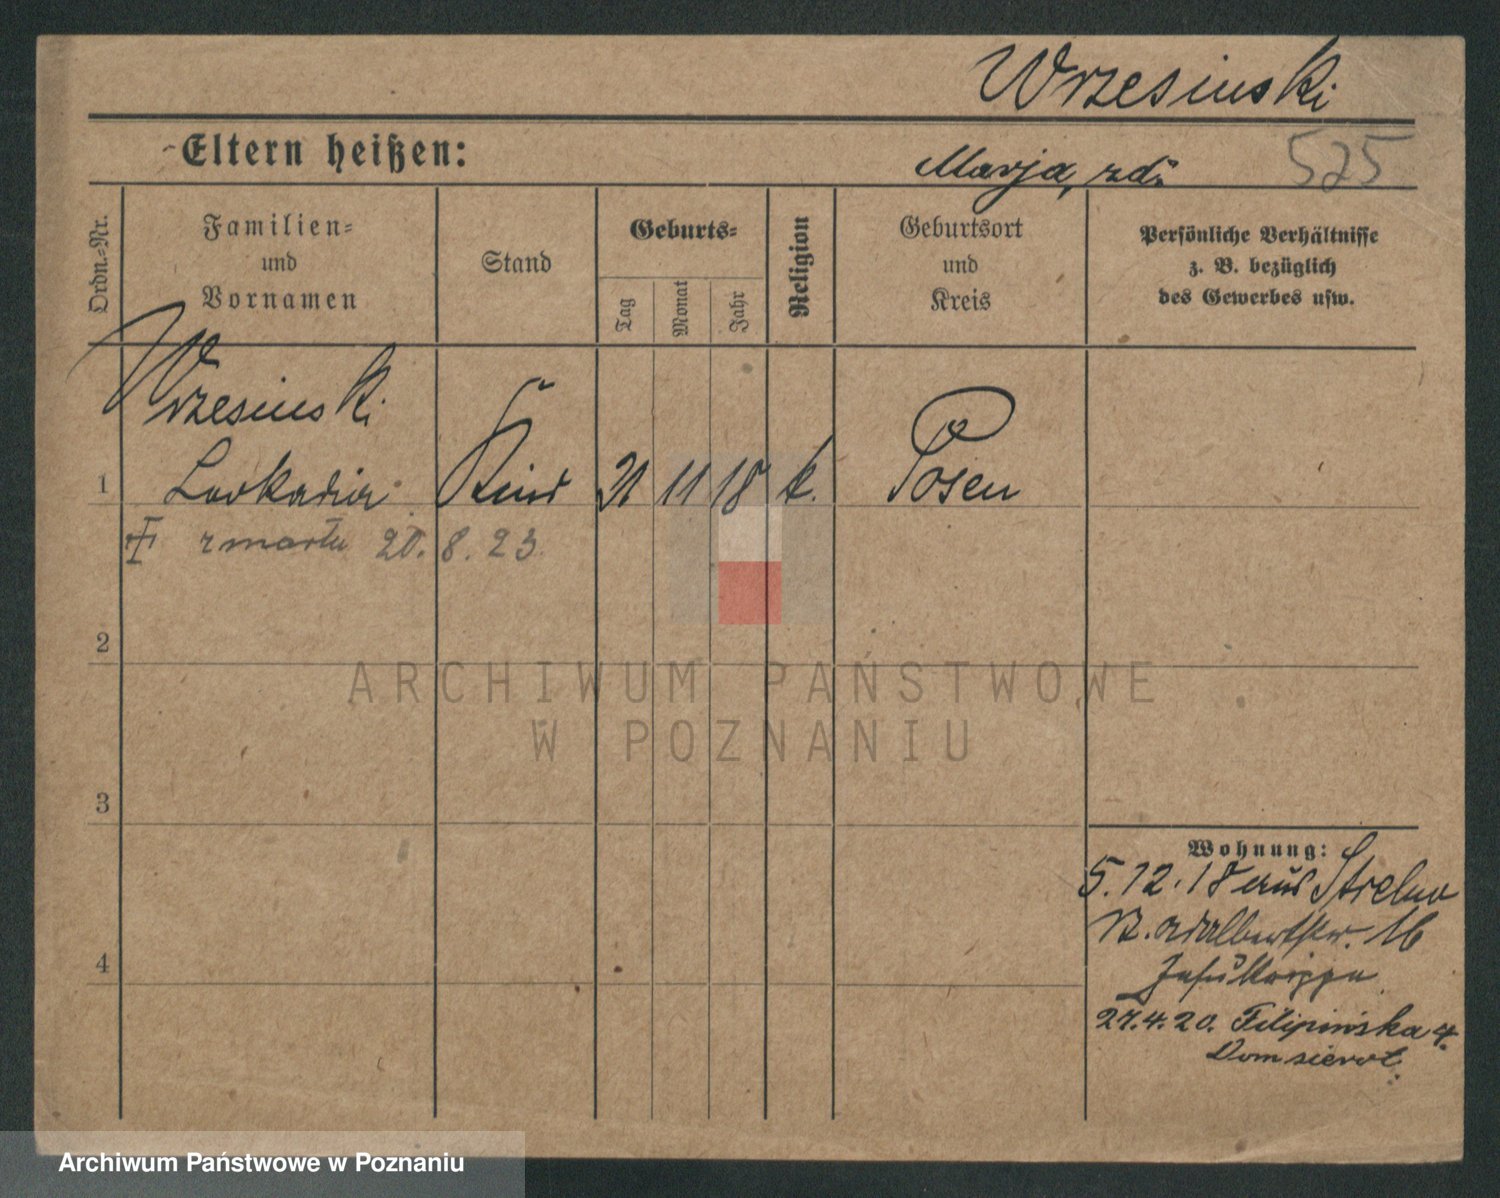 Wrzesinski
Eltern heißen:
Marja, zd.
525
Ordn.-Nr.
Familien-
und
Vornamen
Stand
Geburts-
Tag
Monat
Jahr
Religion
Geburtsort
und
Kreis
Persönliche Verhältnisse
z. B. bezüglich
des Gewerbes usw.
Wrzesinski
1 Leokadia Kind 21 11 18 k. Posen
zmarła 20. 8. 23
2
ARCHIWUM PAŃSTWOWE
W POZNANIU
3
Wohnung:
5.12.18 aus Strelno
St. Adalbertstr. 16
4
27.4.20. Filipińska 4.
Dom sierot.
Archiwum Państwowe w Poznaniu